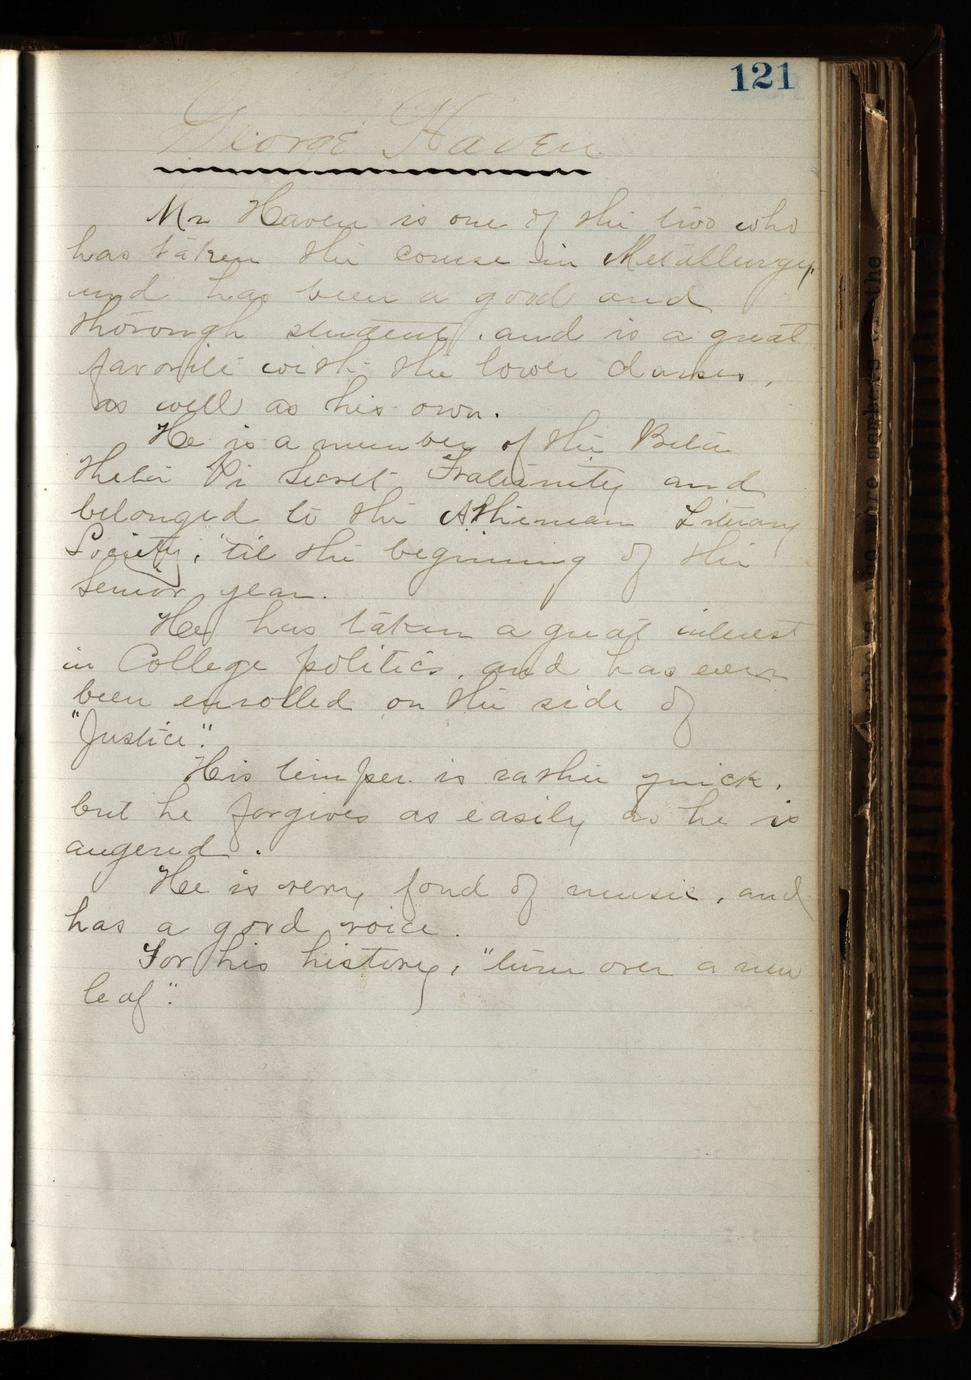 121
George Haven
Mr Haven is one of the two who
has taken the course in Metallurgy,
and has been a good and
thorough student, and is a great
favorite with the lower classes,
as well as his own.
He is a member of the Beta
Theta Pi Secret Fraternity and
belonged to the Athenean Literary
Society, 'til the begining of the
Senior year.
He has taken a great interest
in College politics, and has ever
been enrolled on the side of
"Justice".
His temper is rather quick,
but he forgives as easily as he is
angered.
He is very fond of music, and
has a good voice.
For his history, "turn over a new
leaf".